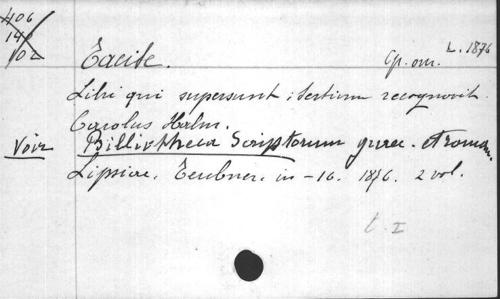 406
140
102
Tacite.
Op. om. L. 1876
Libri qui supersunt; tertium recognovit
Carolus Halm.
Voir Bibliotheca Scriptorum graec. et roman.
Lipsiae, Teubner, in-16. 1876. 2 vol.
t. I